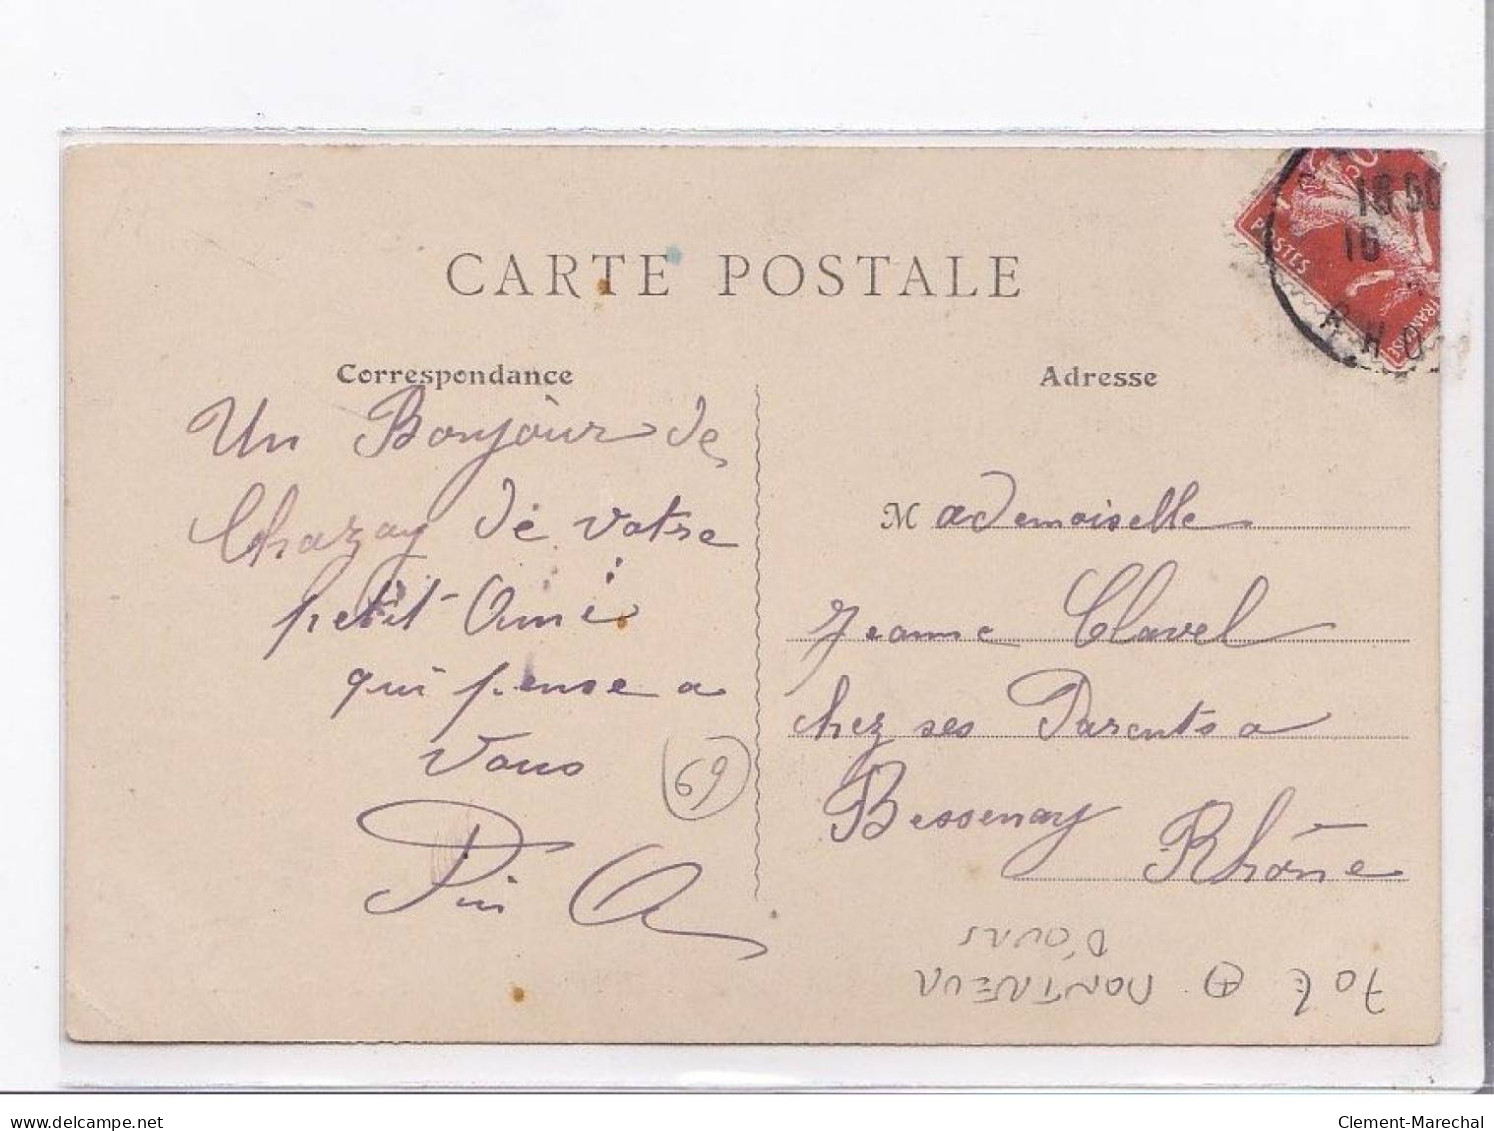 CARTE POSTALE
Correspondance
Un Bonjour de
Chazay de votre
petit Ami
qui pense a
Vous
69
Adresse
Mademoiselle
Jeanne Clavel
chez ses Parents a
Bessenay
Rhône
POSTES
18 50
16
RHO
70 €
MONTREUR
D'OURS
delcampe.net
Clement-Marechal